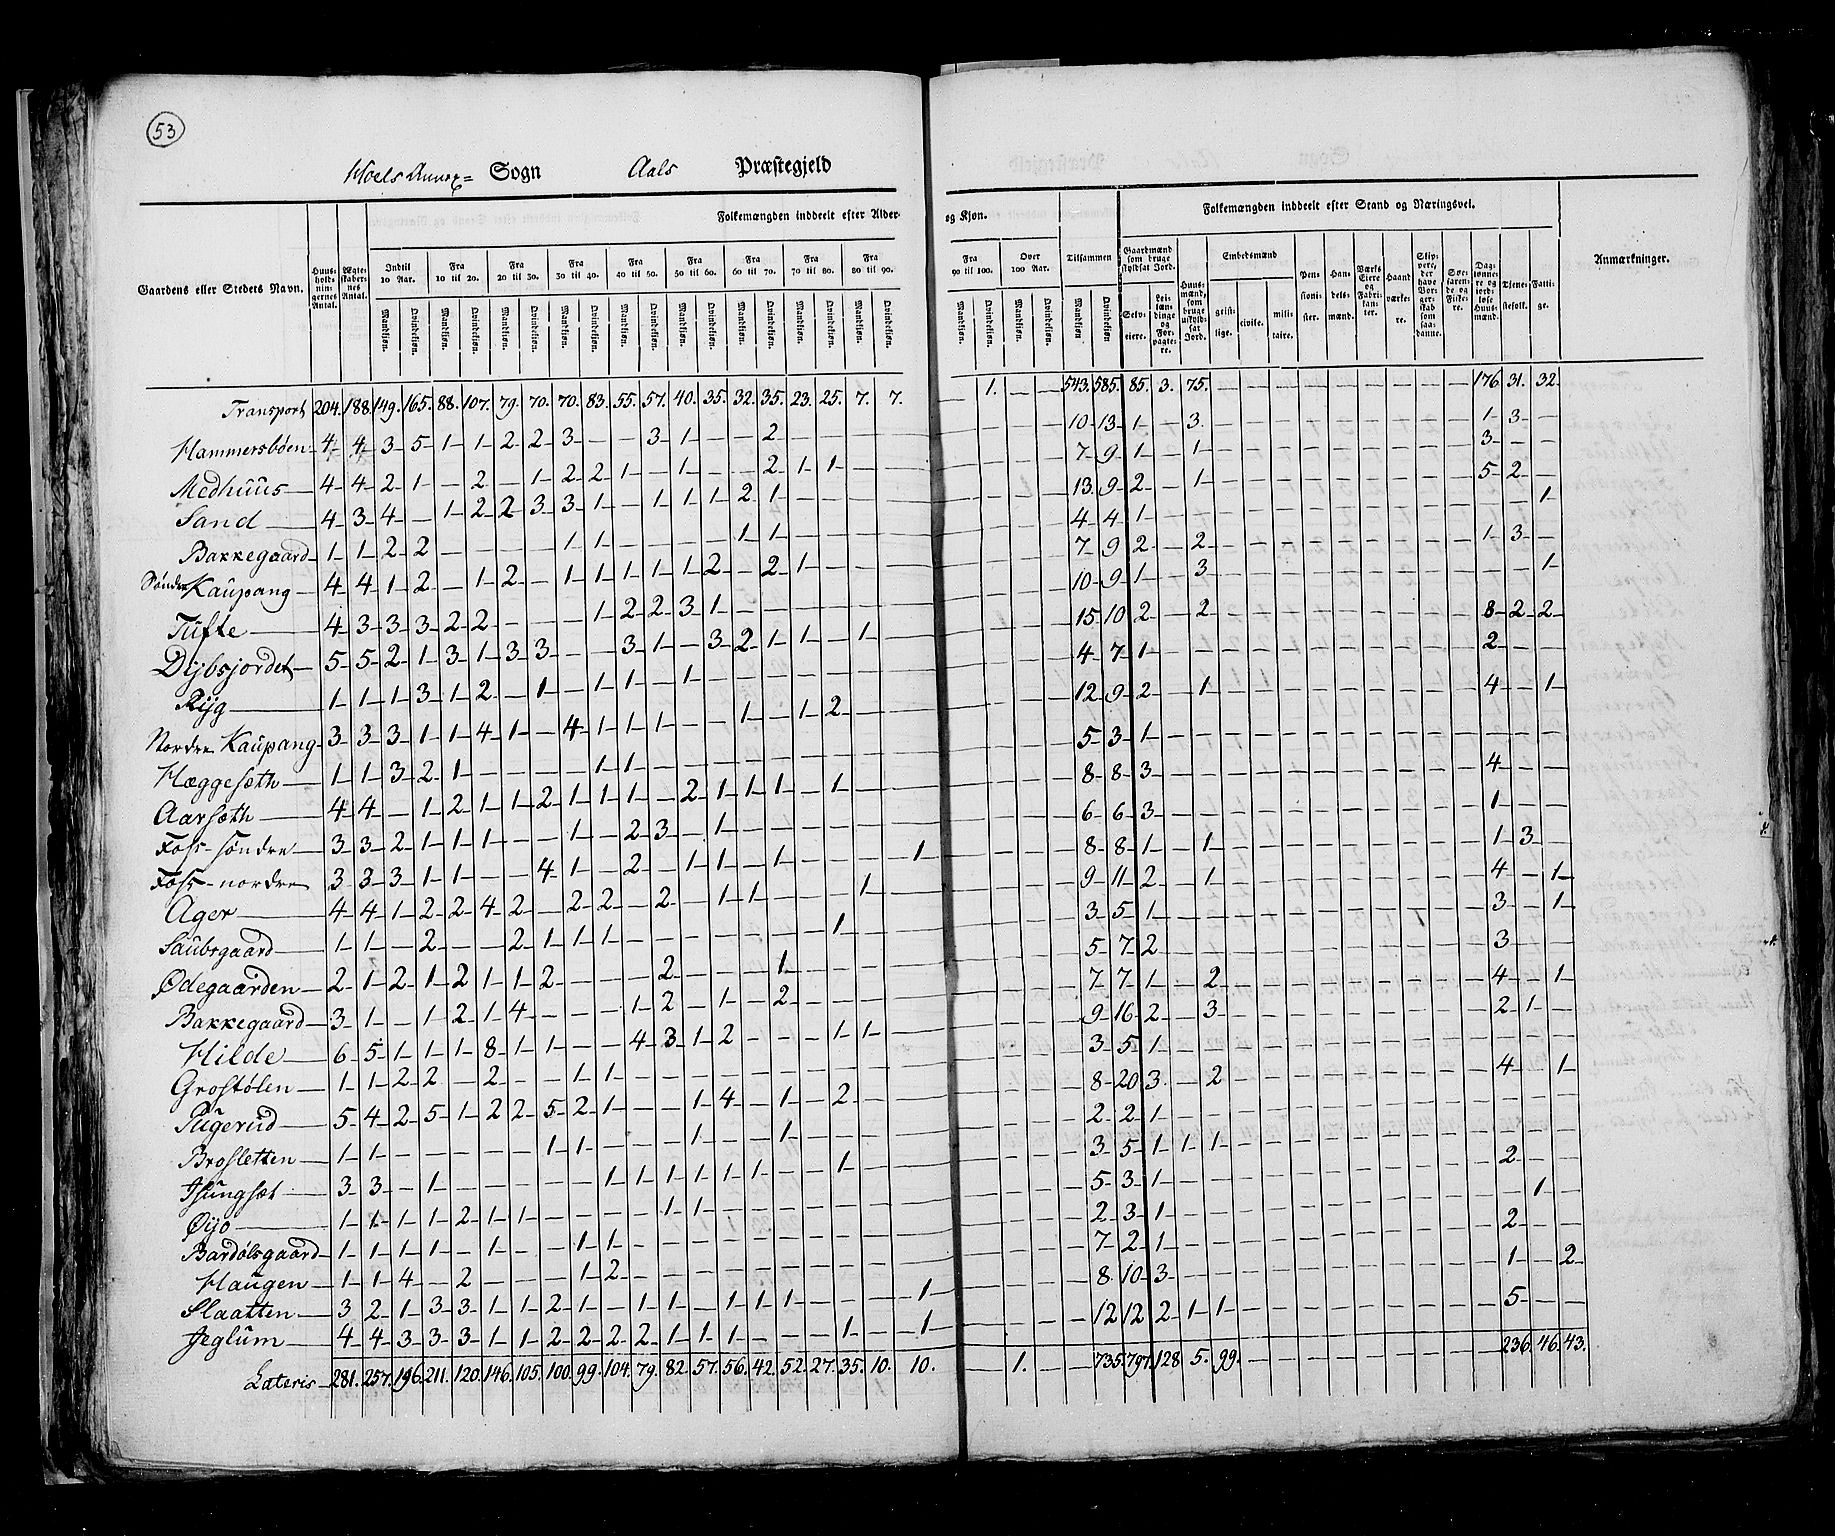 53
Hoels Annex= Sogn Aals Præstegjeld
Gaardens eller Stedets Navn.
Huusholdningernes Antal.
Ægteskabernes Antal.
Folkemængden inddeelt efter Alder og Kjøn.
Indtil 10 Aar. Fra 10 til 20. Fra 20 til 30. Fra 30 til 40. Fra 40 til 50. Fra 50 til 60. Fra 60 til 70. Fra 70 til 80. Fra 80 til 90. Fra 90 til 100. Over 100 Aar. Tilsammen
Mandkjøn. Qvindekjøn.
Folkemængden inddeelt efter Stand og Næringsvei.
Gaardmænd som bruge skyldsat Jord. Selveiere. Leilændinge og Forpagtere.
Huusmænd, som bruge uskyldsat Jord.
Embedsmænd geistlige. civile. militaire.
Pensionister. Handelsmænd. Værks Eiere og Fabrikanter. Haandværkere.
Skippere, der have Borgerskab som saadanne.
Søefarende og Fiskere.
Daglønnere og jordløse Huusmænd.
Tjenestefolk. Fattige.
Anmærkninger.
Transport 204. 188. 149. 165. 88. 107. 79. 70. 70. 83. 55. 57. 40. 35. 32. 35. 23. 25. 7. 7. — 1. — — 543. 585. 85. 3. 75. — — — — — — — — — 176 31. 32.
Hammersbøen 4 4 3 5 1 1 2 2 3 — — 3 1 — — 2 — — — — 10 13 1 — 3 1 3 —
Medhuus 4 4 2 1 — 2 — 1 2 2 1 — 1 — — 2 1 1 — — 7 9 1 — 1 3 — —
Sand 4 3 4 — 1 2 2 3 3 1 — 1 1 1 2 1 — — — — 13 9 2 — 1 5 2 —
Bakkegaard 1 1 2 2 — — — — 1 1 — — — — 1 1 — — — — 4 4 1 — — — — 1
Søndre Kaupang 4 4 1 2 — 1 2 — 1 1 1 1 1 2 — 2 1 — — — 7 9 2 — 2 1 3 —
Tufte 4 3 3 3 2 2 — — — 1 2 2 3 1 — — — — — — 10 9 1 — 3 — — 1
Dybsjordet 5 5 2 1 3 1 3 3 — — 3 1 — 3 2 1 1 — 1 — 15 10 2 — 2 8 2 2
Ryg 1 1 1 3 1 2 — 1 — 1 1 — 1 — — — — — — — 4 7 1 — — 2 — —
Nordre Kaupang 3 3 3 1 1 4 1 — 4 1 1 1 — — 1 — 1 2 — — 12 9 2 — 1 4 — 1
Hæggesæth 1 1 3 2 1 — — — — 1 1 — — — — — — — — — 5 3 1 — — — — —
Aarsæth 4 4 — 1 2 1 1 2 1 1 1 — 2 1 1 1 — 1 — — 8 8 3 — — 4 — —
Foss søndre 3 3 2 1 1 1 — — 1 — 2 3 — 1 — — — — — — 6 6 3 — — 1 — —
Foss nordre 3 3 3 1 1 — — 4 1 — 2 — 1 1 — 1 — — — 1 8 8 1 — 1 1 3 —
Ager 4 4 1 2 2 4 2 — 2 2 — 2 — 1 1 — — — 1 — 9 11 2 — 1 4 — 1
Saubsgaard 1 1 — 2 — — 2 1 1 1 — — — — — — — 1 — — 3 5 1 — — 3 — 1
Ødegaarden 2 1 2 1 2 1 1 2 — — — 2 — — — 1 — — — — 5 7 2 — — 3 — —
Bakkegaard 3 1 — 1 2 1 4 — — — 1 2 — 1 — 2 — — — — 7 7 1 — 2 4 — 1
Hilde 6 5 1 1 1 8 1 1 — — 4 3 1 2 — — — 1 1 — 9 16 2 — 3 2 1 —
Grostølen 1 1 2 2 — 2 — — 1 1 — — — — — — — — — — 3 5 1 — — — — —
Pugerud 5 4 2 5 1 2 2 5 2 1 — — 1 4 — 1 — 2 — — 8 20 3 — 2 4 — 1
Brosletten 1 1 — — — — — 1 1 — — — 1 — — 1 — — — — 2 2 1 — — — — —
3 3 — 1 — — — — — 1 1 1 1 1 1 — — 1 — — 3 5 1 1 1 — — —
Øyo 1 1 1 1 2 1 1 — — — — 1 1 — — — — — — — 5 3 1 — — 2 — —
Bardølsgaard 1 1 1 1 — 1 — — 1 1 — — — — — — — — — — 2 3 1 — — — 1 —
Haugen 1 1 4 — 2 — — — 1 2 — — — — — — — — — — 7 2 1 — — 2 — —
Slaatten 3 2 1 3 3 1 1 2 1 — 1 1 — 1 1 1 — — — 1 8 10 3 — — 1 — 2
Jeglum 4 4 3 3 3 1 1 2 2 2 2 1 1 1 — — — 1 — 1 12 12 2 1 1 5 — —
Lateris 281. 257. 196. 211. 120. 146. 105. 100. 99. 104. 79. 82. 57. 56. 42. 52. 27. 35. 10. 10. — 1. — — 735. 797. 128 5. 99. — — — — — — — — — 236. 46. 43.